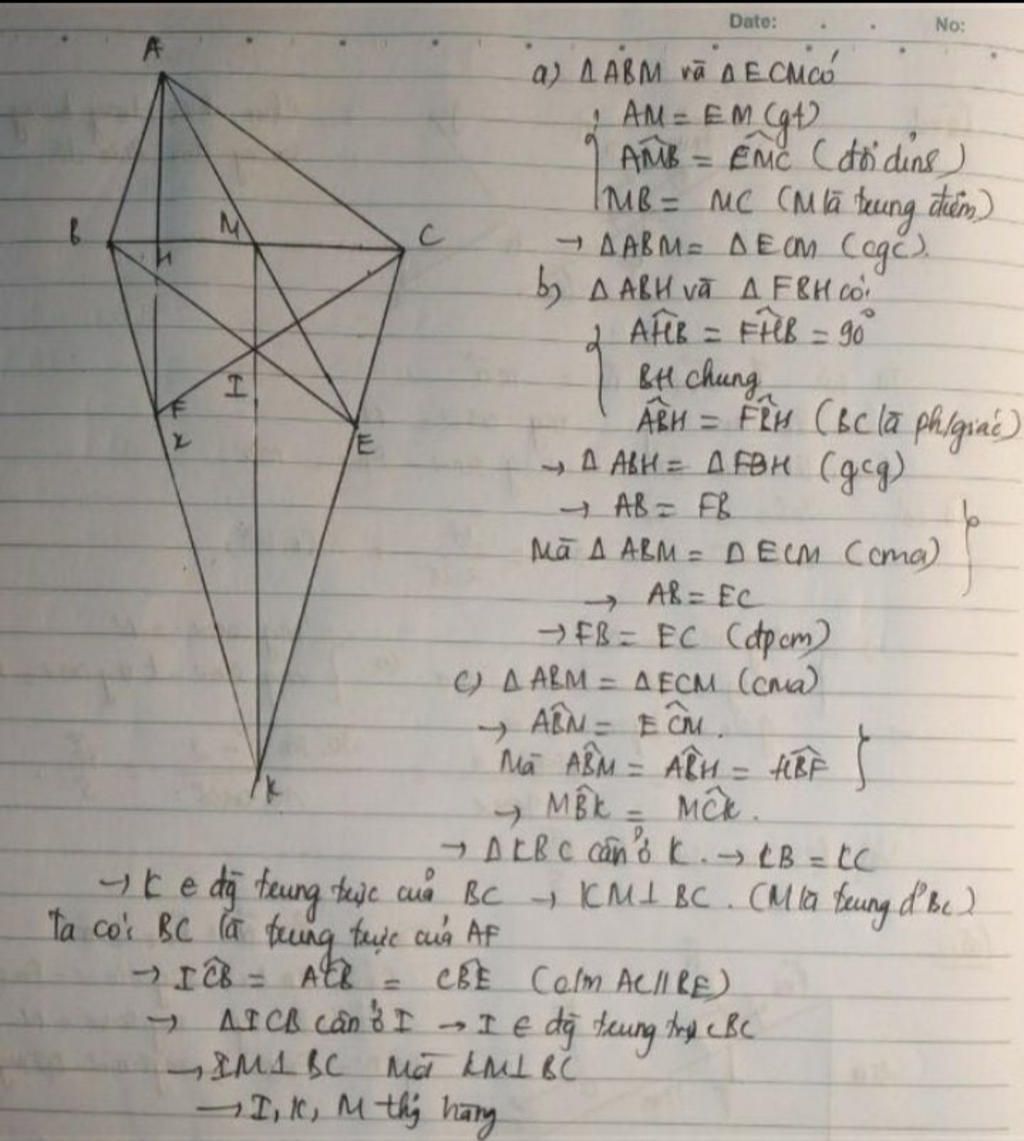 Date: . . No:
A
B
M
C
H
I
F
x
E
K
a) Δ ABM và Δ ECM có
AM = EM (gt)
AM̂B = EM̂C (đối đỉnh)
MB = MC (M là trung điểm)
→ Δ ABM = Δ ECM (cgc).
b) Δ ABH và Δ FBH có:
AĤB = FĤB = 90°
BH chung
AB̂H = FB̂H (BC là ph/giác)
→ Δ ABH = Δ FBH (gcg)
→ AB = FB
Mà Δ ABM = Δ ECM (cma)
→ AB = EC
→ FB = EC (đpcm)
c) Δ ABM = Δ ECM (cma)
→ AB̂M = EĈM.
Mà AB̂M = AB̂H = HB̂F
→ MB̂K = MĈK.
→ Δ KBC cân ở K. → KB = KC
→ K ∈ đg trung trực của BC → KM ⊥ BC. (M là trung đ' BC)
Ta có: BC là trung trực của AF
→ IĈB = AĈB = CB̂E (c/m AC // BE)
→ ΔICB cân ở I → I ∈ đg trung trực BC
→ IM ⊥ BC Mà KM ⊥ BC
→ I, K, M thg hàng